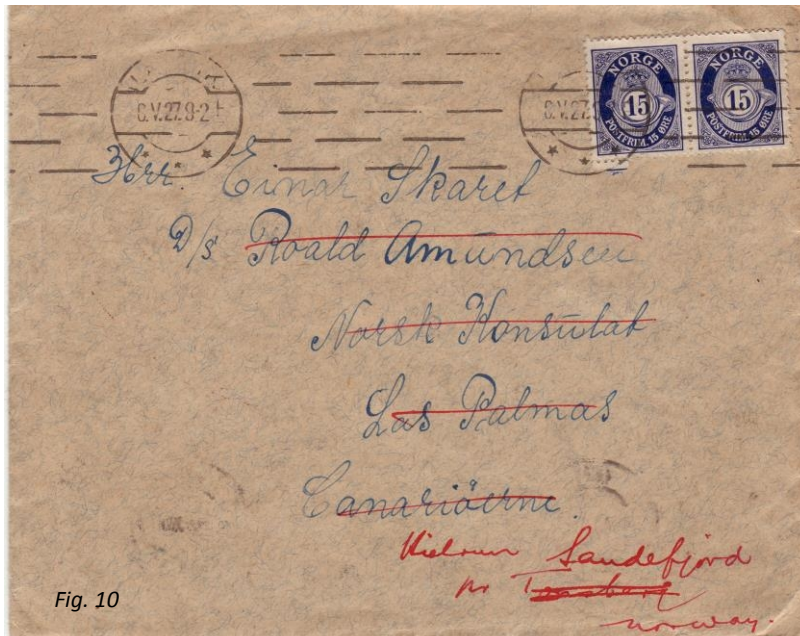 6.V.27.9-2
6.V.27.9
NORGE
15
POSTFRIM. 15 ØRE
NORGE
15
POSTFRIM. 15 ØRE
Hrr. Einar Skaret
D/s Roald Amundsen
Norsk Konsulat
Las Palmas
Canariöerne.
Sandefjord
nr
Norway.
Fig. 10